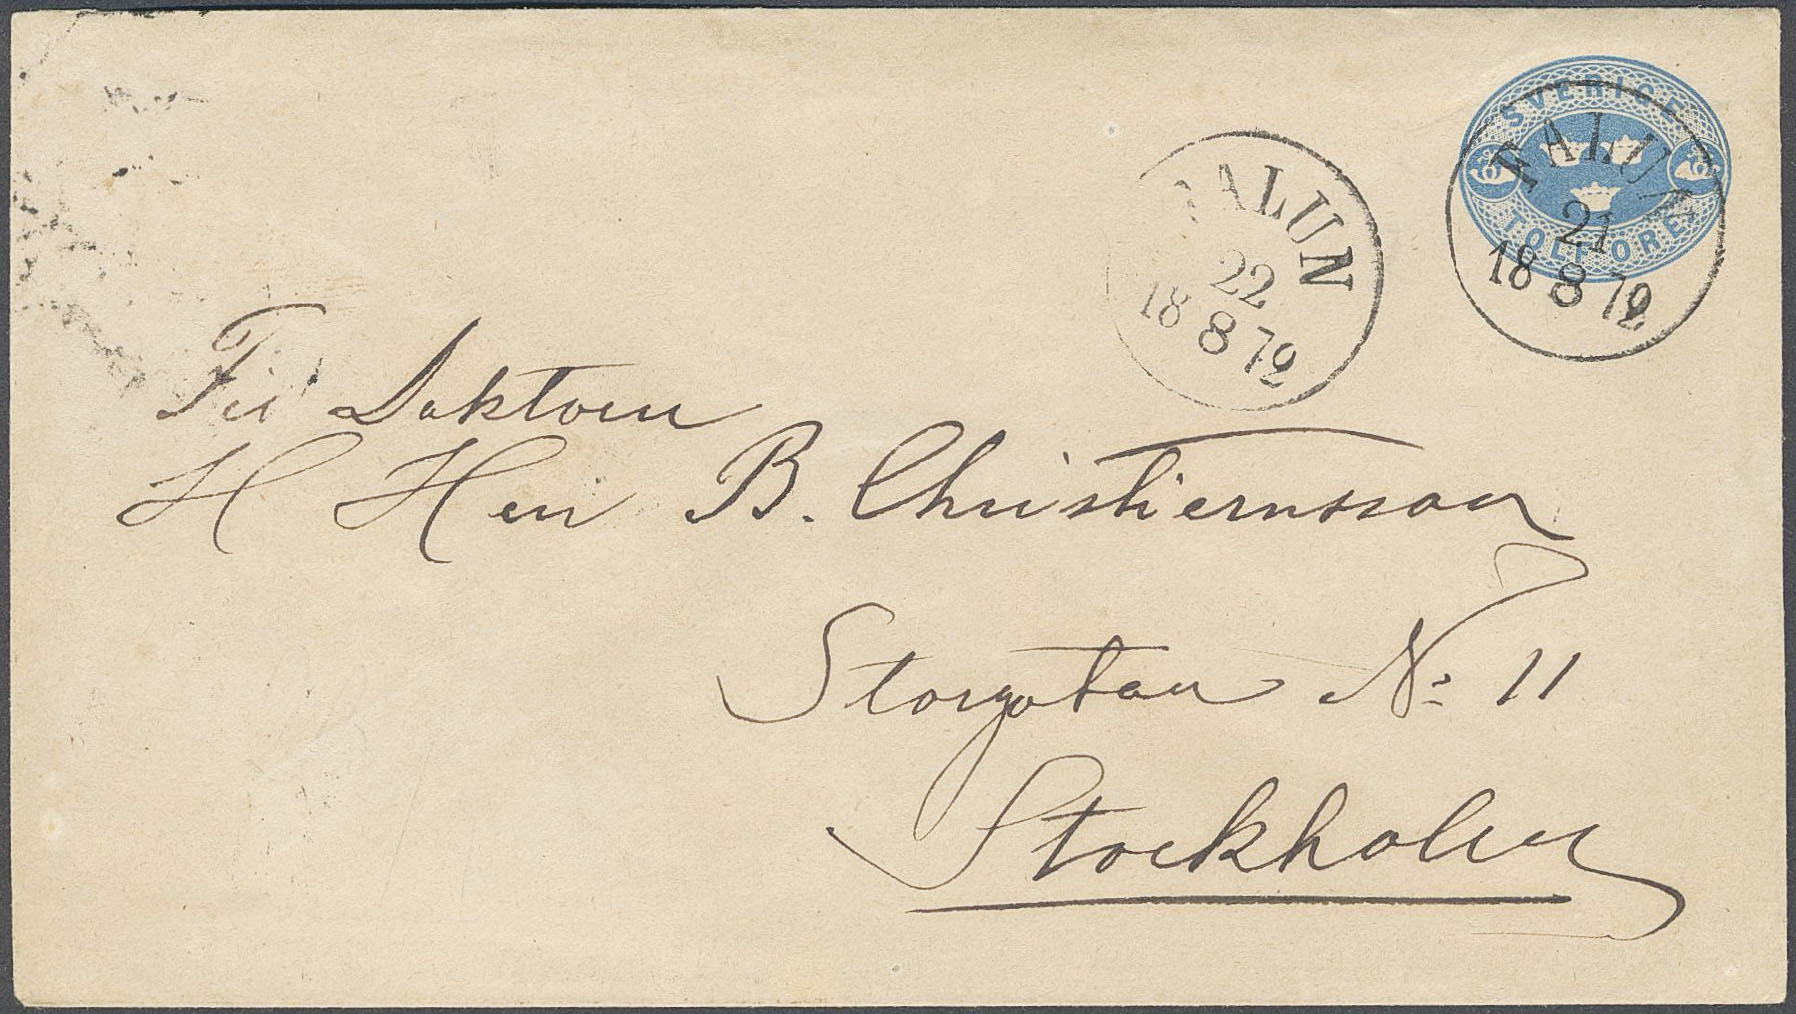 SVERIGE
TOLF ÖRE
FALUN
21
18 8 72
FALUN
22
18 8 72
Fil Doktorn
H Herr B. Christiernsson
Storgatan No 11
Stockholm